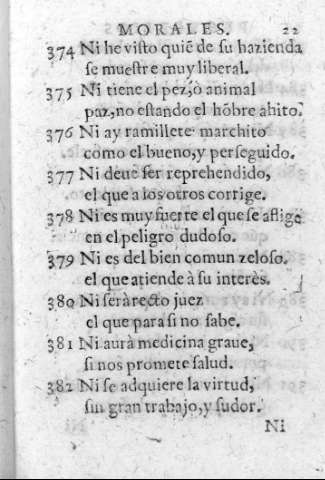 MORALES. 22
374 Ni he visto quiē de su hazienda
se muestre muy liberal.
375 Ni tiene el pez, ò animal
paz, no estando el hōbre ahito.
376 Ni ay ramillete marchito
como el bueno, y perseguido.
377 Ni deue ser reprehendido,
el que a los otros corrige.
378 Ni es muy fuerte el que se aflige
en el peligro dudoso.
379 Ni es del bien comun zeloso,
el que atiende à su interès.
380 Ni serà recto juez
el que para si no sabe.
381 Ni aurà medicina graue,
si nos promete salud.
382 Ni se adquiere la virtud,
sin gran trabajo, y sudor.
Ni